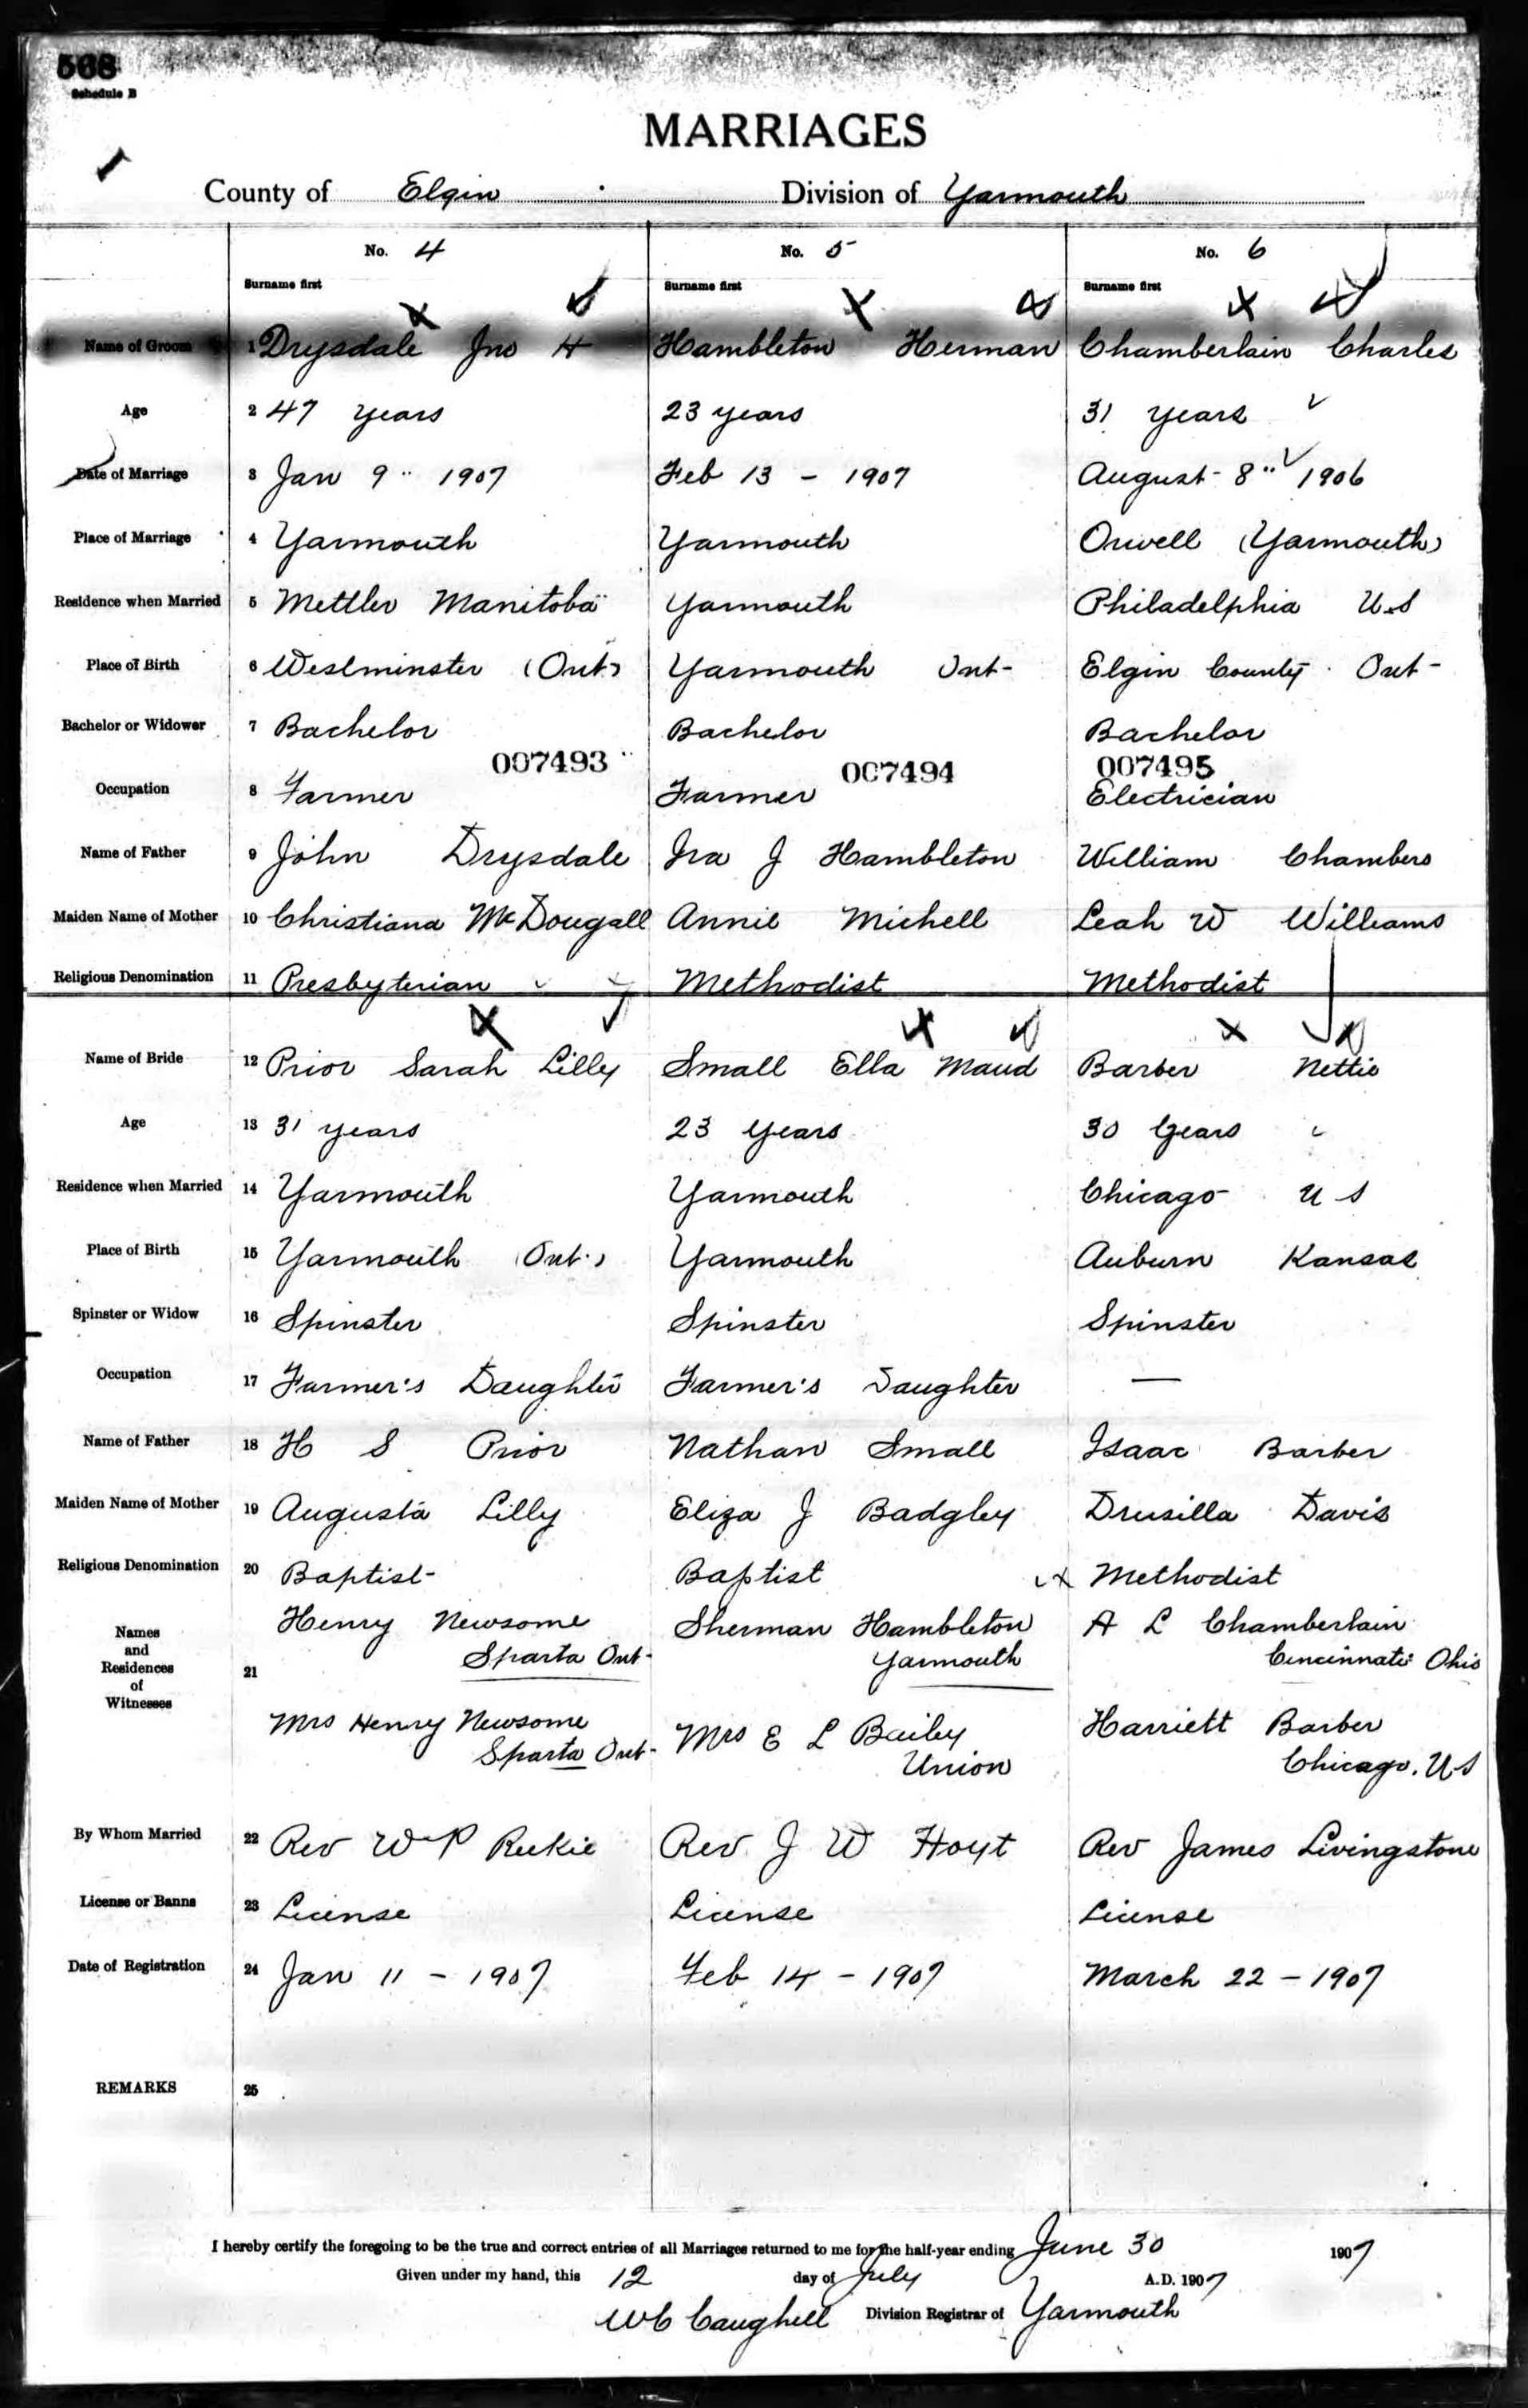 568
Schedule B
MARRIAGES
County of Elgin Division of Yarmouth
No. 4 No. 5 No. 6
Surname first Surname first Surname first
Name of Groom 1 Drysdale Jno H Hambleton Herman Chamberlain Charles
Age 2 47 years 23 years 31 years
Date of Marriage 3 Jan 9" 1907 Feb 13 - 1907 August 8" 1906
Place of Marriage 4 Yarmouth Yarmouth Orwell (Yarmouth)
Residence when Married 5 Mettler Manitoba Yarmouth Philadelphia U.S
Place of Birth 6 Westminster (Ont) Yarmouth Ont- Elgin County Ont-
Bachelor or Widower 7 Bachelor Bachelor Bachelor
007493 007494 007495
Occupation 8 Farmer Farmer Electrician
Name of Father 9 John Drysdale Ira J Hambleton William Chambers
Maiden Name of Mother 10 Christiana McDougall Annie Michell Leah W Williams
Religious Denomination 11 Presbyterian Methodist Methodist
Name of Bride 12 Prior Sarah Lilly Small Ella Maud Barber Nettie
Age 13 31 years 23 Years 30 Years
Residence when Married 14 Yarmouth Yarmouth Chicago U S
Place of Birth 15 Yarmouth (Ont.) Yarmouth Auburn Kansas
Spinster or Widow 16 Spinster Spinster Spinster
Occupation 17 Farmer's Daughter Farmer's Daughter —
Name of Father 18 H S Prior Nathan Small Isaac Barber
Maiden Name of Mother 19 Augusta Lilly Eliza J Badgley Drusilla Davis
Religious Denomination 20 Baptist- Baptist Methodist
Names and Residences of Witnesses 21 Henry Newsome Sherman Hambleton A L Chamberlain
Sparta Ont- Yarmouth Cincinnati Ohio
Mrs Henry Newsome Mrs E L Bailey Harriett Barber
Sparta Ont- Union Chicago. U S
By Whom Married 22 Rev W P Reekie Rev. J W Hoyt Rev James Livingstone
License or Banns 23 License License License
Date of Registration 24 Jan 11 - 1907 Feb 14 - 1907 March 22 - 1907
REMARKS 25
I hereby certify the foregoing to be the true and correct entries of all Marriages returned to me for the half-year ending June 30 1907
Given under my hand, this 12 day of July A.D. 1907
W C Caughell Division Registrar of Yarmouth